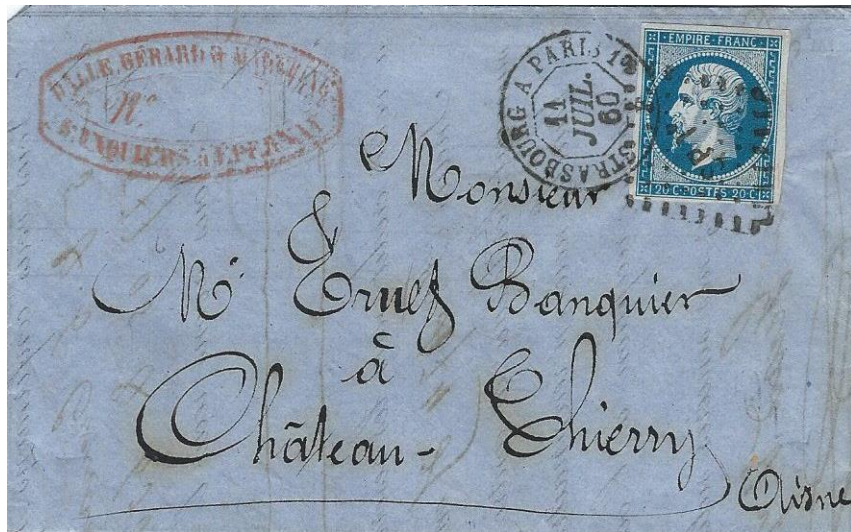 GÉRARD &
BANQUIERS à EPERNAY
Nº
STRASBOURG A PARIS 1º
11
JUIL.
60
EMPIRE FRANC
20 C POSTES 20 C
Monsieur
Mr Banquier
à
Château-Thierry
Aisne